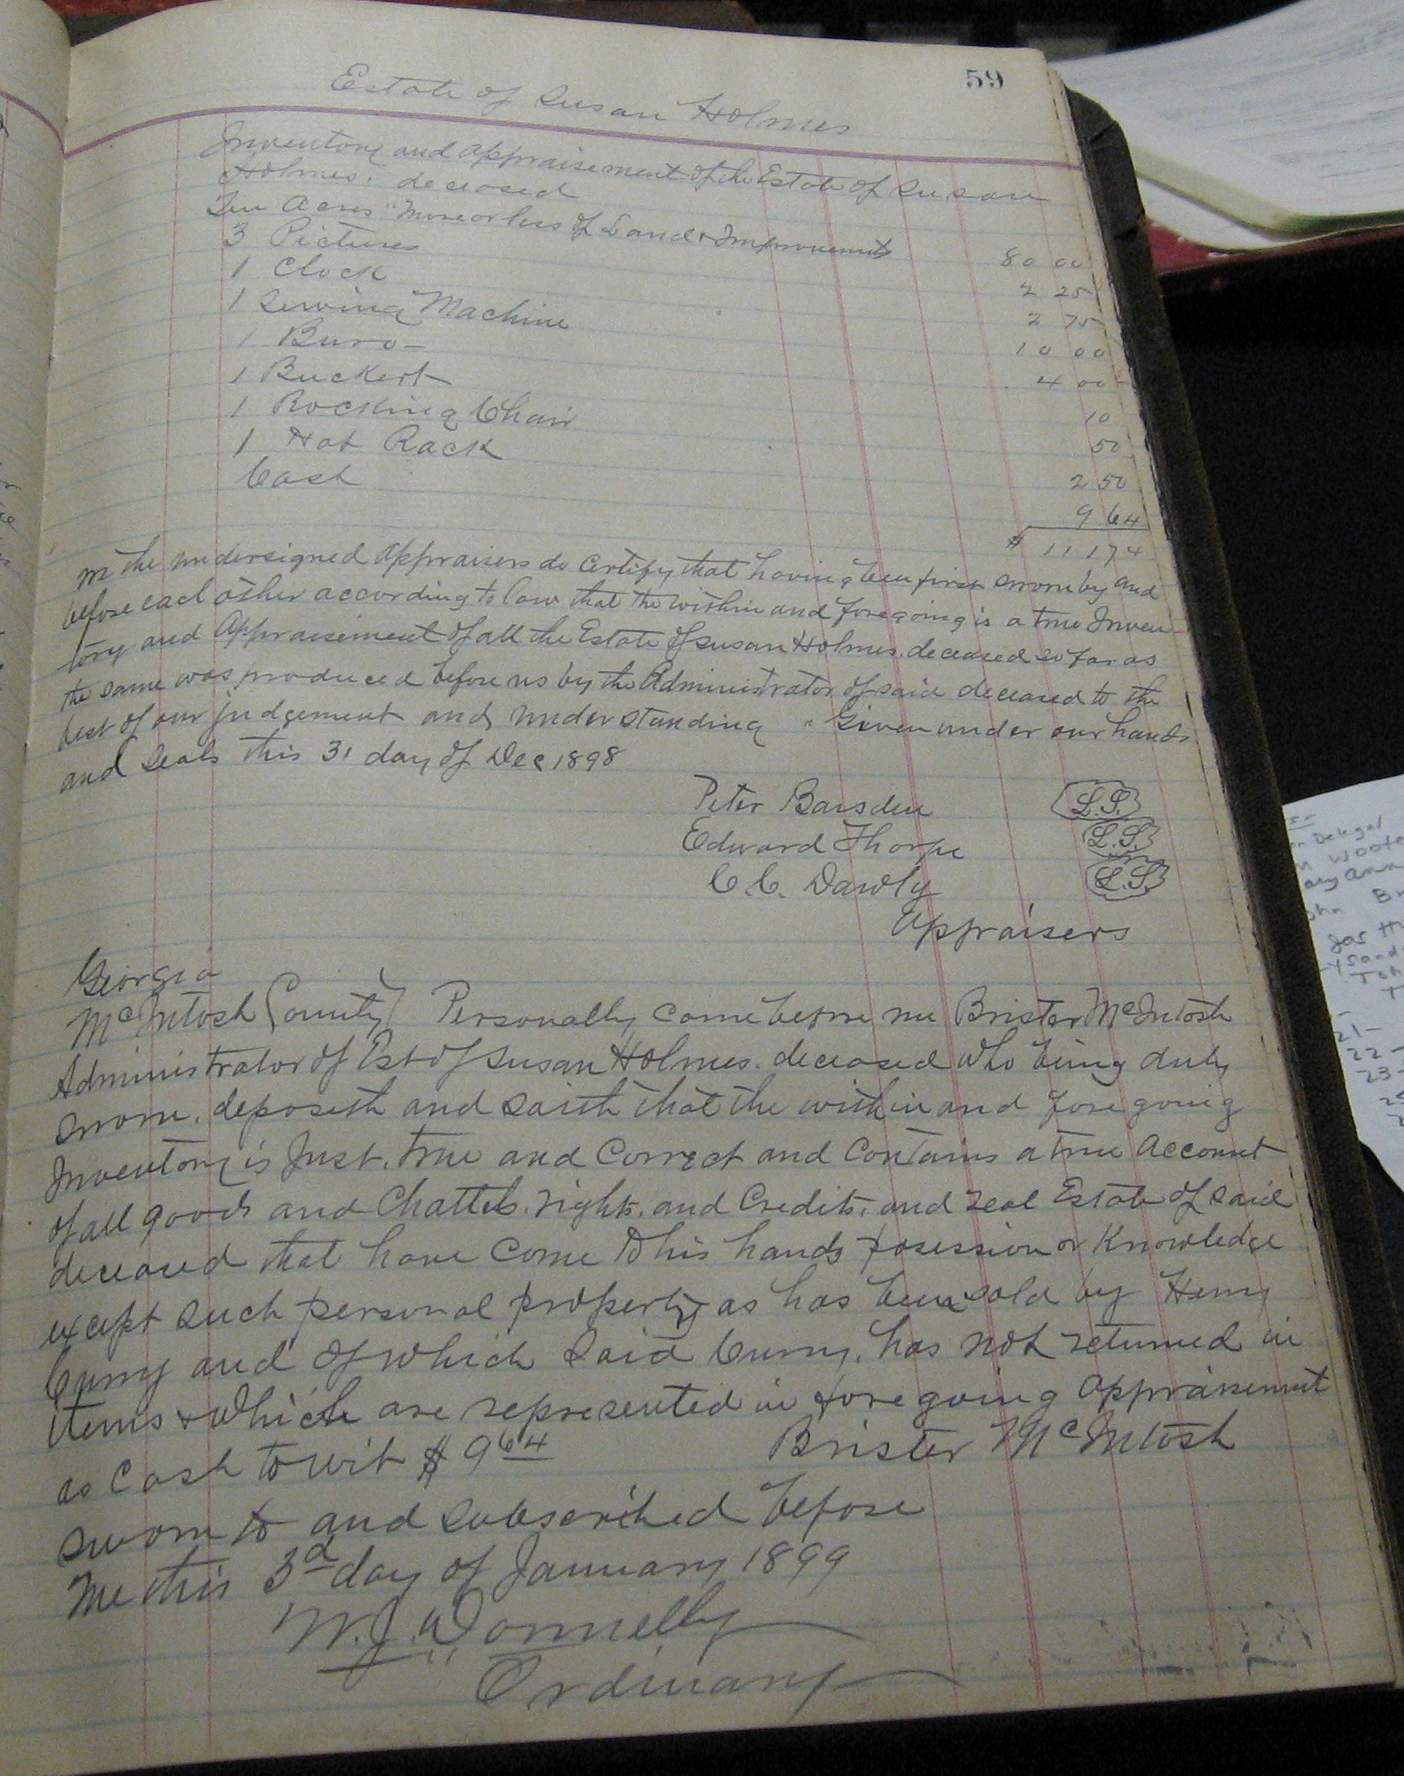 59
Estate of Susan Holmes
Inventory and appraisement of the Estate of Susan
Holmes. deceased
Ten Acres "More or less of Land & Improvements 80 00
3 Pictures 2 25
1 Clock 2 75
1 Sewing Machine 10 00
1 Buro - 4 00
1 Buckert 10
1 Rocking Chair 50
1 Hat Rack 2 50
Cash 9 64
$ 111 74
We the undersigned appraisers do certify that having been first sworn by and
before each other according to law that the within and foregoing is a true Inven
tory and Appraisement of all the Estate of Susan Holmes. deceased so far as
the same was produced before us by the Administrator of said deceased to the
best of our judgement and understanding " Given under our hands
and Seals this 31 day of Dec 1898
Peter Baisden L.S.
Edward Thorpe L.S.
C. C. Dawly L.S.
Appraisers
Georgia
McIntosh County } Personally come before me Brister McIntosh
Administrator of Est of Susan Holmes. deceased who being duly
sworn. deposeth and saith that the within and foregoing
Inventory is Just. true and Correct and Contains a true Account
of all goods and Chattels. rights. and Credits. and real Estate of said
deceased that have come to his hands posession or Knowledge
except such personal property as has been sold by Henry
Curry and of which said Curry. has not returned in
items & which are represented in foregoing appraisement
as Cash to wit $ 9 64 Brister McIntosh
Sworn to and subscribed before
me this 3d day of January 1899
W. J. Donnelly
Ordinary
Delegal
21 -
22 -
23 -